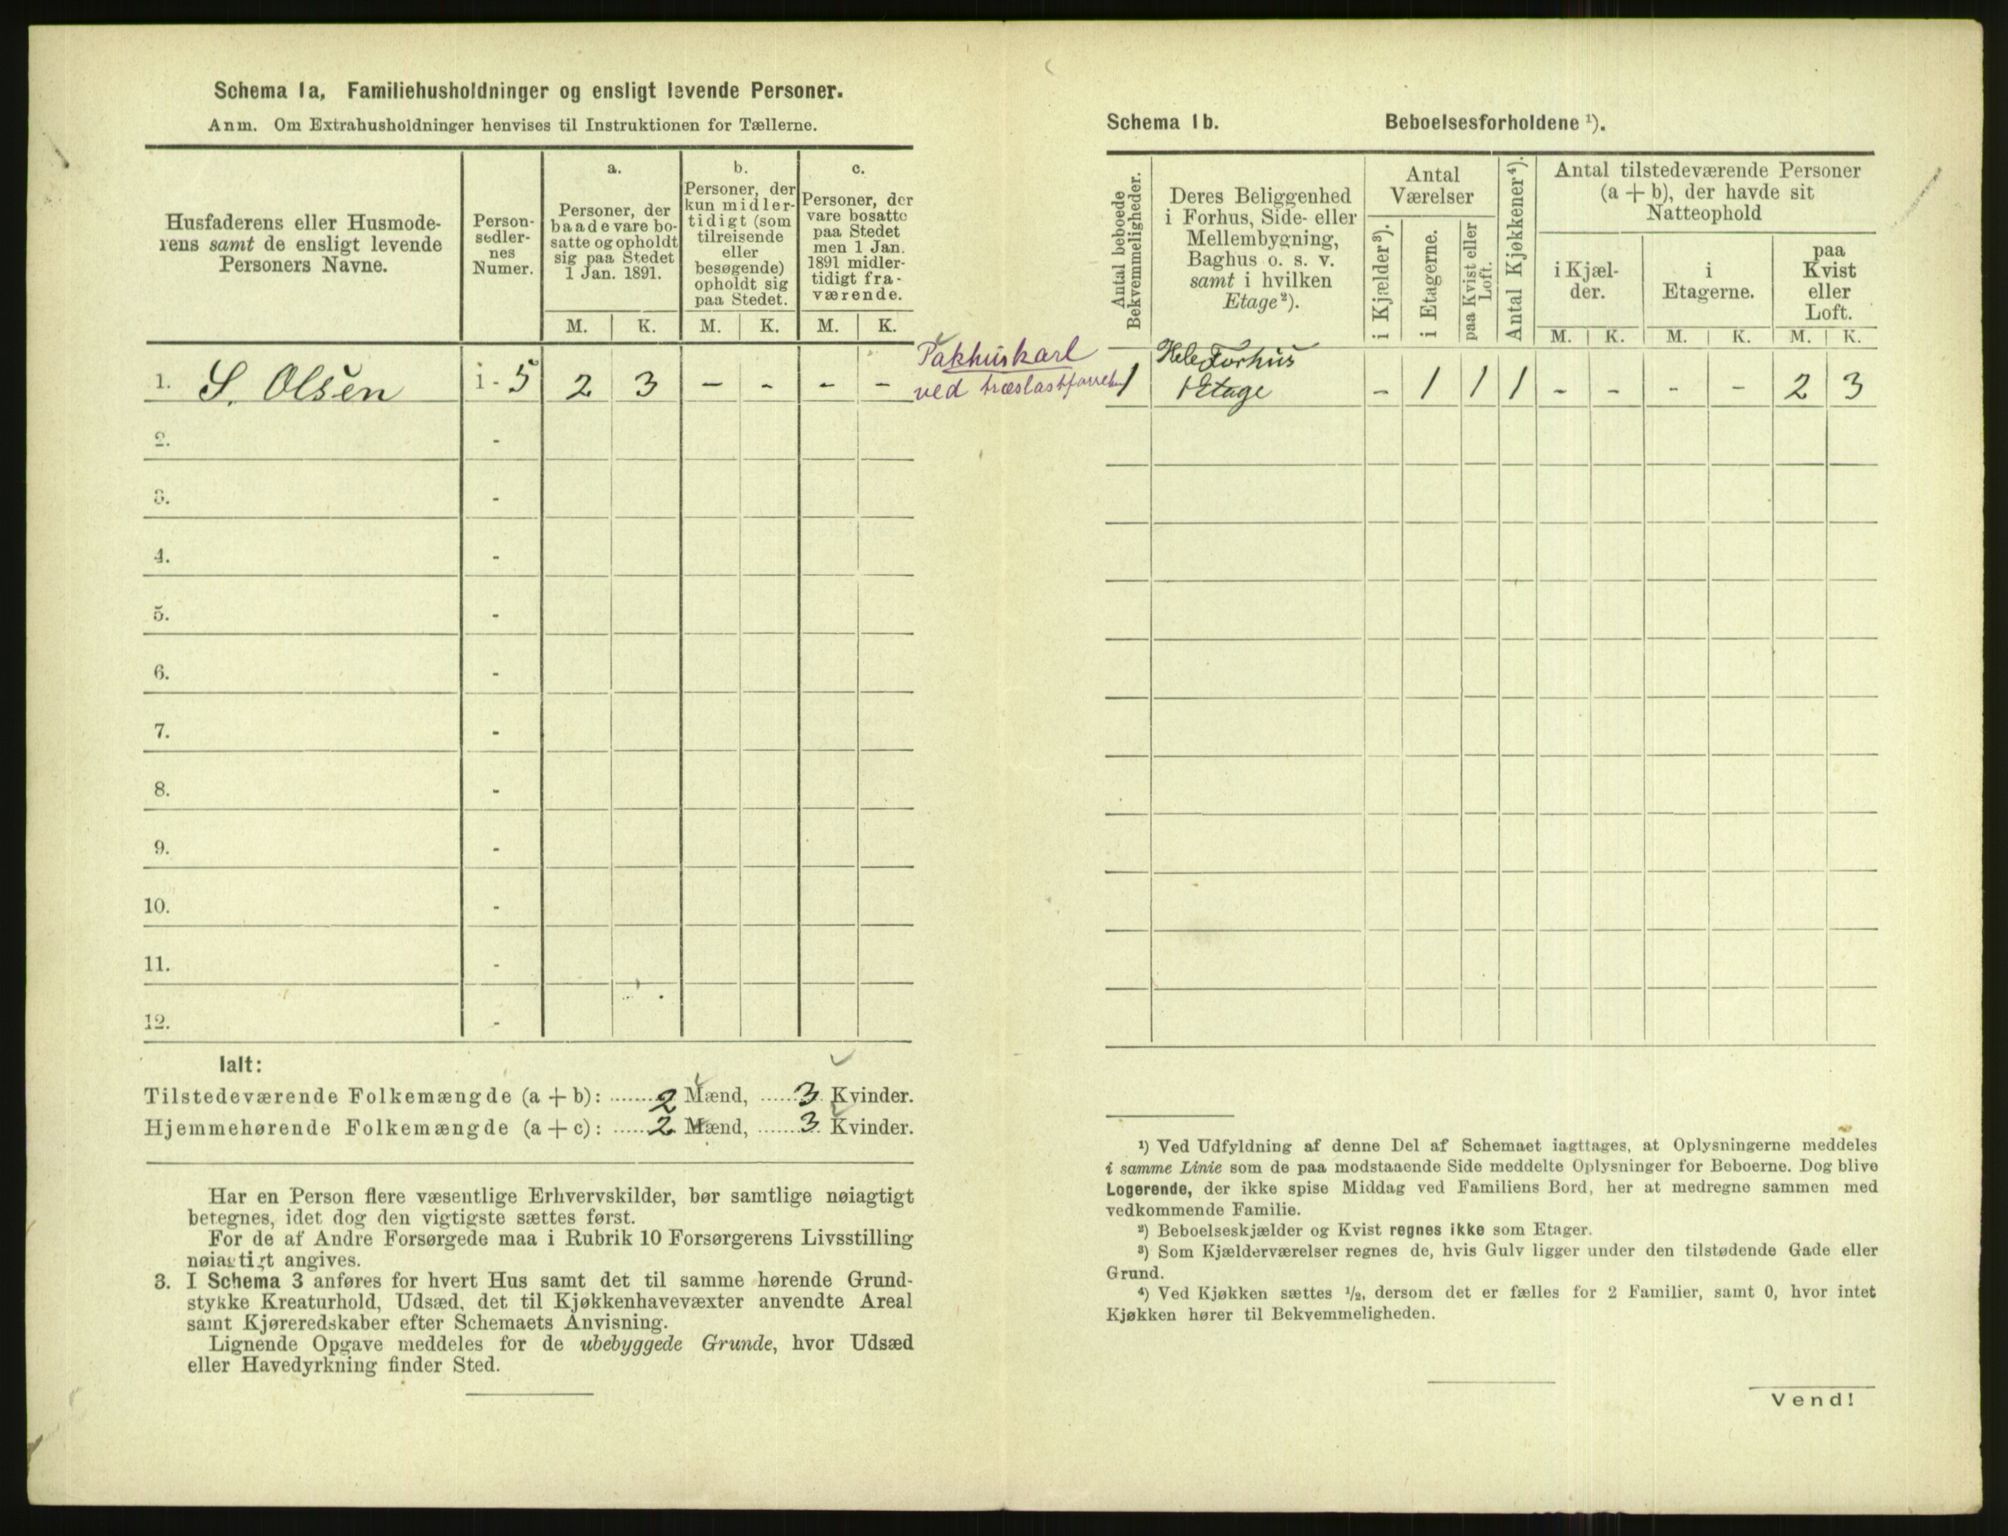 Schema 1a. Familiehusholdninger og ensligt levende Personer.
Anm. Om Extrahusholdninger henvises til Instruktionen for Tællerne.
Husfaderens eller Husmode-
rens samt de ensligt levende
Personers Navne.
Person-
sedler-
nes
Numer.
a.
Personer, der
baade vare bo-
satte og opholdt
sig paa Stedet
1 Jan. 1891.
b.
Personer, der
kun midler-
tidigt (som
tilreisende
eller
besøgende)
opholdt sig
paa Stedet.
c.
Personer, der
vare bosatte
paa Stedet
men 1 Jan.
1891 midler-
tidigt fra-
værende.
M. K. M. K. M. K.
1. S. Olsen 1 - 5 2 3 - - - -
Pakhuskarl
ved træslastforret
2. -
3. -
4. -
5. -
6. -
7. -
8. -
9. -
10. -
11. -
12. -
Ialt:
Tilstedeværende Folkemængde (a + b): 2 Mænd, 3 Kvinder.
Hjemmehørende Folkemængde (a + c): 2 Mænd, 3 Kvinder.
Har en Person flere væsentlige Erhvervskilder, bør samtlige nøiagtigt
betegnes, idet dog den vigtigste sættes først.
For de af Andre Forsørgede maa i Rubrik 10 Forsørgerens Livsstilling
nøiagtigt angives.
3. I Schema 3 anføres for hvert Hus samt det til samme hørende Grund-
stykke Kreaturhold, Udsæd, det til Kjøkkenhavevæxter anvendte Areal
samt Kjøreredskaber efter Schemaets Anvisning.
Lignende Opgave meddeles for de ubebyggede Grunde, hvor Udsæd
eller Havedyrkning finder Sted.
Schema 1b. Beboelsesforholdene ¹).
Antal beboede
Bekvemmeligheder.
Deres Beliggenhed
i Forhus, Side- eller
Mellembygning,
Baghus o. s. v.
samt i hvilken
Etage²).
Antal
Værelser
i Kjælder³).
i Etagerne.
paa Kvist eller
Loft.
Antal Kjøkkener⁴).
Antal tilstedeværende Personer
(a + b), der havde sit
Natteophold
i Kjæl-
der.
i
Etagerne.
paa
Kvist
eller
Loft.
M. K. M. K. M. K.
Hele Forhus
1 1 Etage - 1 1 1 - - - - 2 3
¹) Ved Udfyldning af denne Del af Schemaet iagttages, at Oplysningerne meddeles
i samme Linie som de paa modstaaende Side meddelte Oplysninger for Beboerne. Dog blive
Logerende, der ikke spise Middag ved Familiens Bord, her at medregne sammen med
vedkommende Familie.
²) Beboelseskjælder og Kvist regnes ikke som Etager.
³) Som Kjælderværelser regnes de, hvis Gulv ligger under den tilstødende Gade eller
Grund.
⁴) Ved Kjøkken sættes ½, dersom det er fælles for 2 Familier, samt 0, hvor intet
Kjøkken hører til Bekvemmeligheden.
Vend!